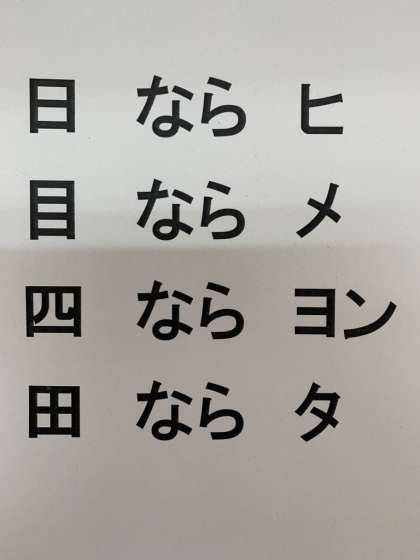 日 なら ヒ
目 なら メ
四 なら ヨン
田 なら タ